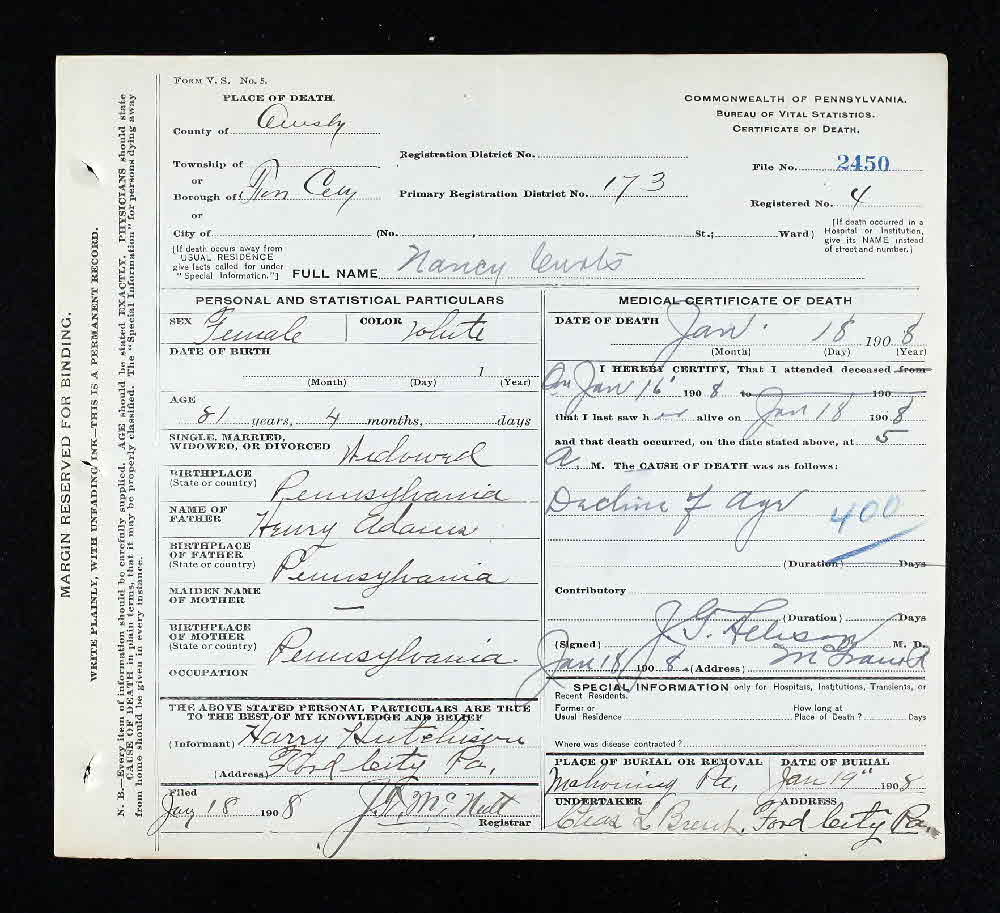 FORM V. S. No. 5.
PLACE OF DEATH.
County of
Township of
or
Borough of
or
City of (No. , St.; Ward)
[If death occurs away from
USUAL RESIDENCE
give facts called for under
"Special Information."]
COMMONWEALTH OF PENNSYLVANIA.
BUREAU OF VITAL STATISTICS.
CERTIFICATE OF DEATH.
Registration District No.
Primary Registration District No. 173
File No. 2450
Registered No. 4
[If death occurred in a
Hospital or Institution,
give its NAME instead
of street and number.]
FULL NAME Nancy
MARGIN RESERVED FOR BINDING.
WRITE PLAINLY, WITH UNFADING INK—THIS IS A PERMANENT RECORD.
N. B.—Every item of information should be carefully supplied. AGE should be stated EXACTLY. PHYSICIANS should state
CAUSE OF DEATH in plain terms, that it may be properly classified. The "Special Information" for persons dying away
from home should be given in every instance.
PERSONAL AND STATISTICAL PARTICULARS
SEX Female COLOR White
DATE OF BIRTH
1
(Month) (Day) (Year)
AGE
81 years, 4 months, days
SINGLE, MARRIED,
WIDOWED, OR DIVORCED Widowed
BIRTHPLACE
(State or country) Pennsylvania
NAME OF
FATHER Henry Adams
BIRTHPLACE
OF FATHER
(State or country) Pennsylvania
MAIDEN NAME
OF MOTHER —
BIRTHPLACE
OF MOTHER
(State or country) Pennsylvania
OCCUPATION
THE ABOVE STATED PERSONAL PARTICULARS ARE TRUE
TO THE BEST OF MY KNOWLEDGE AND BELIEF
(Informant) Harry Hutchison
(Address) Ford City Pa.
Filed
Jan 18 1908 McNutt
Registrar
MEDICAL CERTIFICATE OF DEATH
DATE OF DEATH Jan. 18 1908
(Month) (Day) (Year)
I HEREBY CERTIFY, That I attended deceased from
On Jan 16 1908 to 190
that I last saw her alive on Jan 18 1908
and that death occurred, on the date stated above, at 5
A M. The CAUSE OF DEATH was as follows:
Decline of Age 400
(Duration) Days
Contributory
(Duration) Days
(Signed) J. G. M. D.
Jan 18 1908 (Address)
SPECIAL INFORMATION only for Hospitals, Institutions, Transients, or
Recent Residents.
Former or
Usual Residence
How long at
Place of Death? Days
Where was disease contracted?
PLACE OF BURIAL OR REMOVAL
Mahoning Pa.
DATE OF BURIAL
Jan 19" 1908
UNDERTAKER
Chas L
ADDRESS
Ford City Pa.